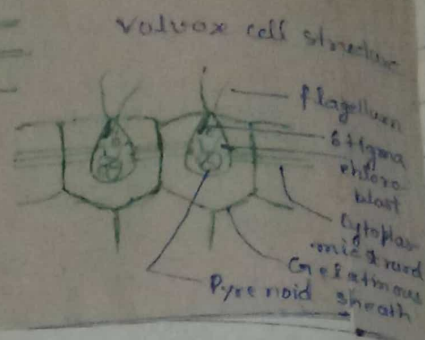 Volvox cell structure
flagellum
stigma
chloro
blast
Cytoplas
mic strand
Gelatinous
sheath
Pyrenoid